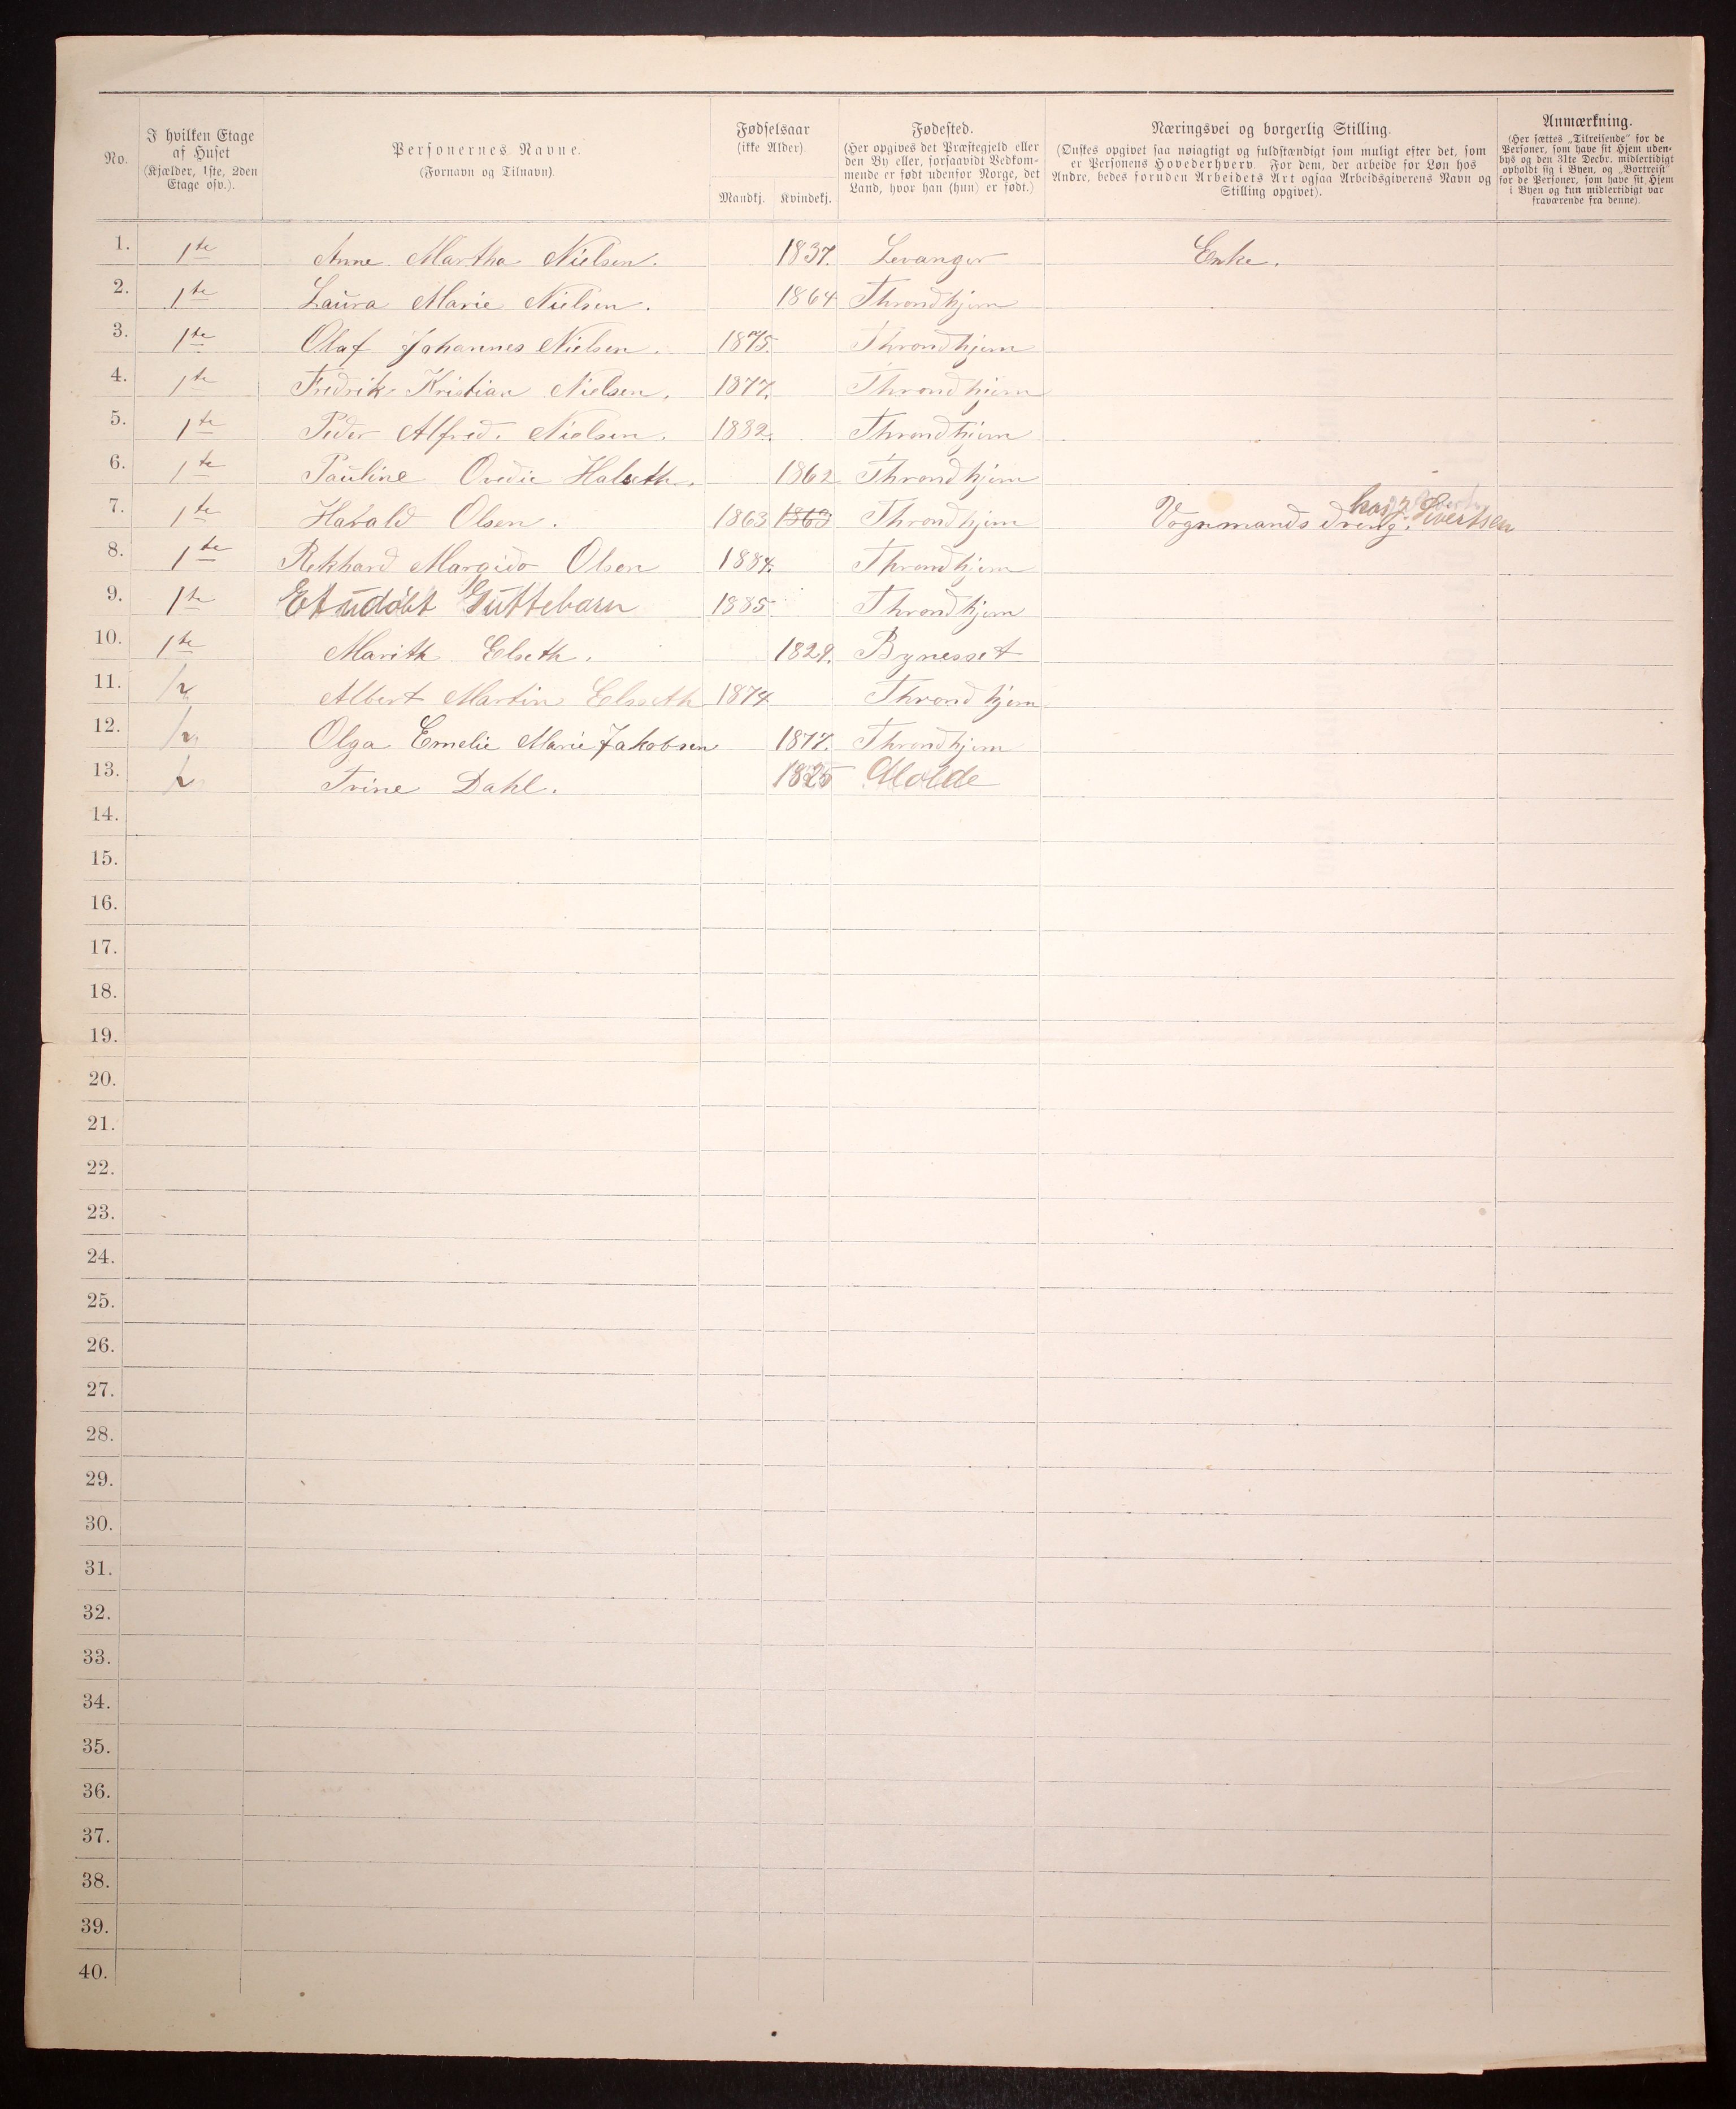 No.
I hvilken Etage
af Huset
(Kjælder, 1ste, 2den
Etage osv.).
Personernes Navne.
(Fornavn og Tilnavn)
Fødselsaar
(ikke Alder).
Mandkj. Kvindekj.
Fødested.
(Her opgives det Præstegjeld eller
den By eller, forsaavidt Vedkom-
mende er født udenfor Norge, det
Land, hvor han (hun) er født.)
Næringsvei og borgerlig Stilling.
(Ønskes opgivet saa nøiagtigt og fuldstændigt som muligt efter det, som
er Personens Hovederhverv. For dem, der arbeide for Løn hos
Andre, bedes foruden Arbeidets Art ogsaa Arbeidsgiverens Navn og
Stilling opgivet).
Anmærkning.
(Her sættes „Tilreisende" for de
Personer, som have sit Hjem uden-
bys og den 31te Decbr. midlertidigt
opholdt sig i Byen, og „Bortreist"
for de Personer, som have sit Hjem
i Byen og kun midlertidigt var
fraværende fra denne).
1. 1te Anne Martha Nielsen. 1837. Levanger Enke.
2. 1te Laura Marie Nielsen. 1864 Throndhjem
3. 1te Olaf Johannes Nielsen. 1875. Throndhjem
4. 1te Fredrik Kristian Nielsen. 1877. Throndhjem
5. 1te Peder Alfred. Nielsen. 1882. Throndhjem
6. 1te Pauline Ovedie Halseth. 1862 Throndhjem
7. 1te Harald Olsen. 1863 1863 Throndhjem Vognmands dreng. hos J. Sivertsen
8. 1te Rikhard Margido Olsen 1884. Throndhjem
9. 1te Et udøbt Guttebarn 1885 Throndhjem
10. 1te Marith Elseth. 1829. Bynesset
11. Albert Martin Elsseth 1874 Throndhjem
12. Olga Emelie Marie Jakobsen 1877. Throndhjem
13. Trine Dahl. 1825 Molde
14.
15.
16.
17.
18.
19.
20.
21.
22.
23.
24.
25.
26.
27.
28.
29.
30.
31.
32.
33.
34.
35.
36.
37.
38.
39.
40.